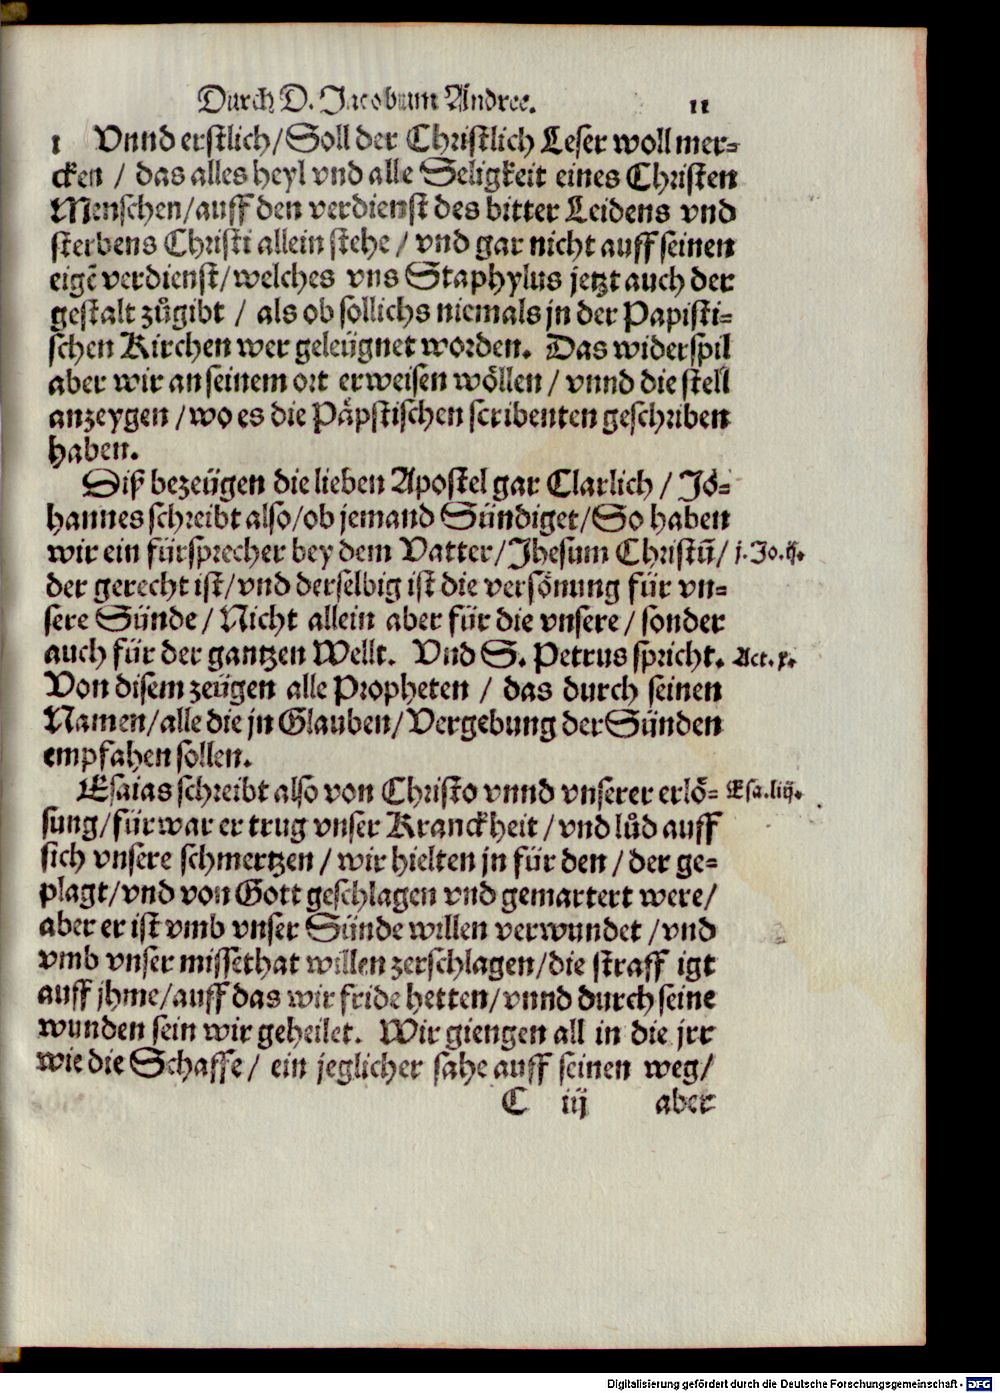 Durch D. Jacobum Andree. 11
1 Vnnd erstlich/Soll der Christlich Leser woll mer-
cken / das alles heyl vnd alle Seligkeit eines Christen
Menschen/auff den verdienst des bitter Leidens vnd
sterbens Christi allein stehe / vnd gar nicht auff seinen
eigẽ verdienst/welches vns Staphylus jetzt auch der
gestalt zůgibt / als ob sollichs niemals jn der Papisti-
schen Kirchen wer geleügnet worden. Das widerspil
aber wir an seinem ort erweisen wöllen / vnnd die stell
anzeygen /wo es die Päpstischen scribenten geschriben
haben.
Diß bezeügen die lieben Apostel gar Clarlich / Jo-
hannes schreibt also/ob jemand Sündiget/So haben
wir ein fürsprecher bey dem Vatter/Jhesum Christũ/ j. Jo. ij.
der gerecht ist/vnd derselbig ist die versönung für vn-
sere Sünde / Nicht allein aber für die vnsere / sonder
auch für der gantzen Wellt. Vnd S. Petrus spricht. Act. x.
Von disem zeügen alle Propheten / das durch seinen
Namen/alle die jn Glauben/Vergebung der Sünden
empfahen sollen.
Esaias schreibt also von Christo vnnd vnserer erlö- Esa. liij.
sung/fürwar er trug vnser Kranckheit /vnd lůd auff
sich vnsere schmertzen / wir hielten jn für den / der ge-
plagt/vnd von Gott geschlagen vnd gemartert were/
aber er ist vmb vnser Sünde willen verwundet /vnd
vmb vnser missethat willen zerschlagen/die straff igt
auff jhme/auff das wir fride hetten/vnnd durch seine
wunden sein wir geheilet. Wir giengen all in die jrr
wie die Schaffe / ein jeglicher sahe auff seinen weg/
C iij aber
Digitalisierung gefördert durch die Deutsche Forschungsgemeinschaft - DFG